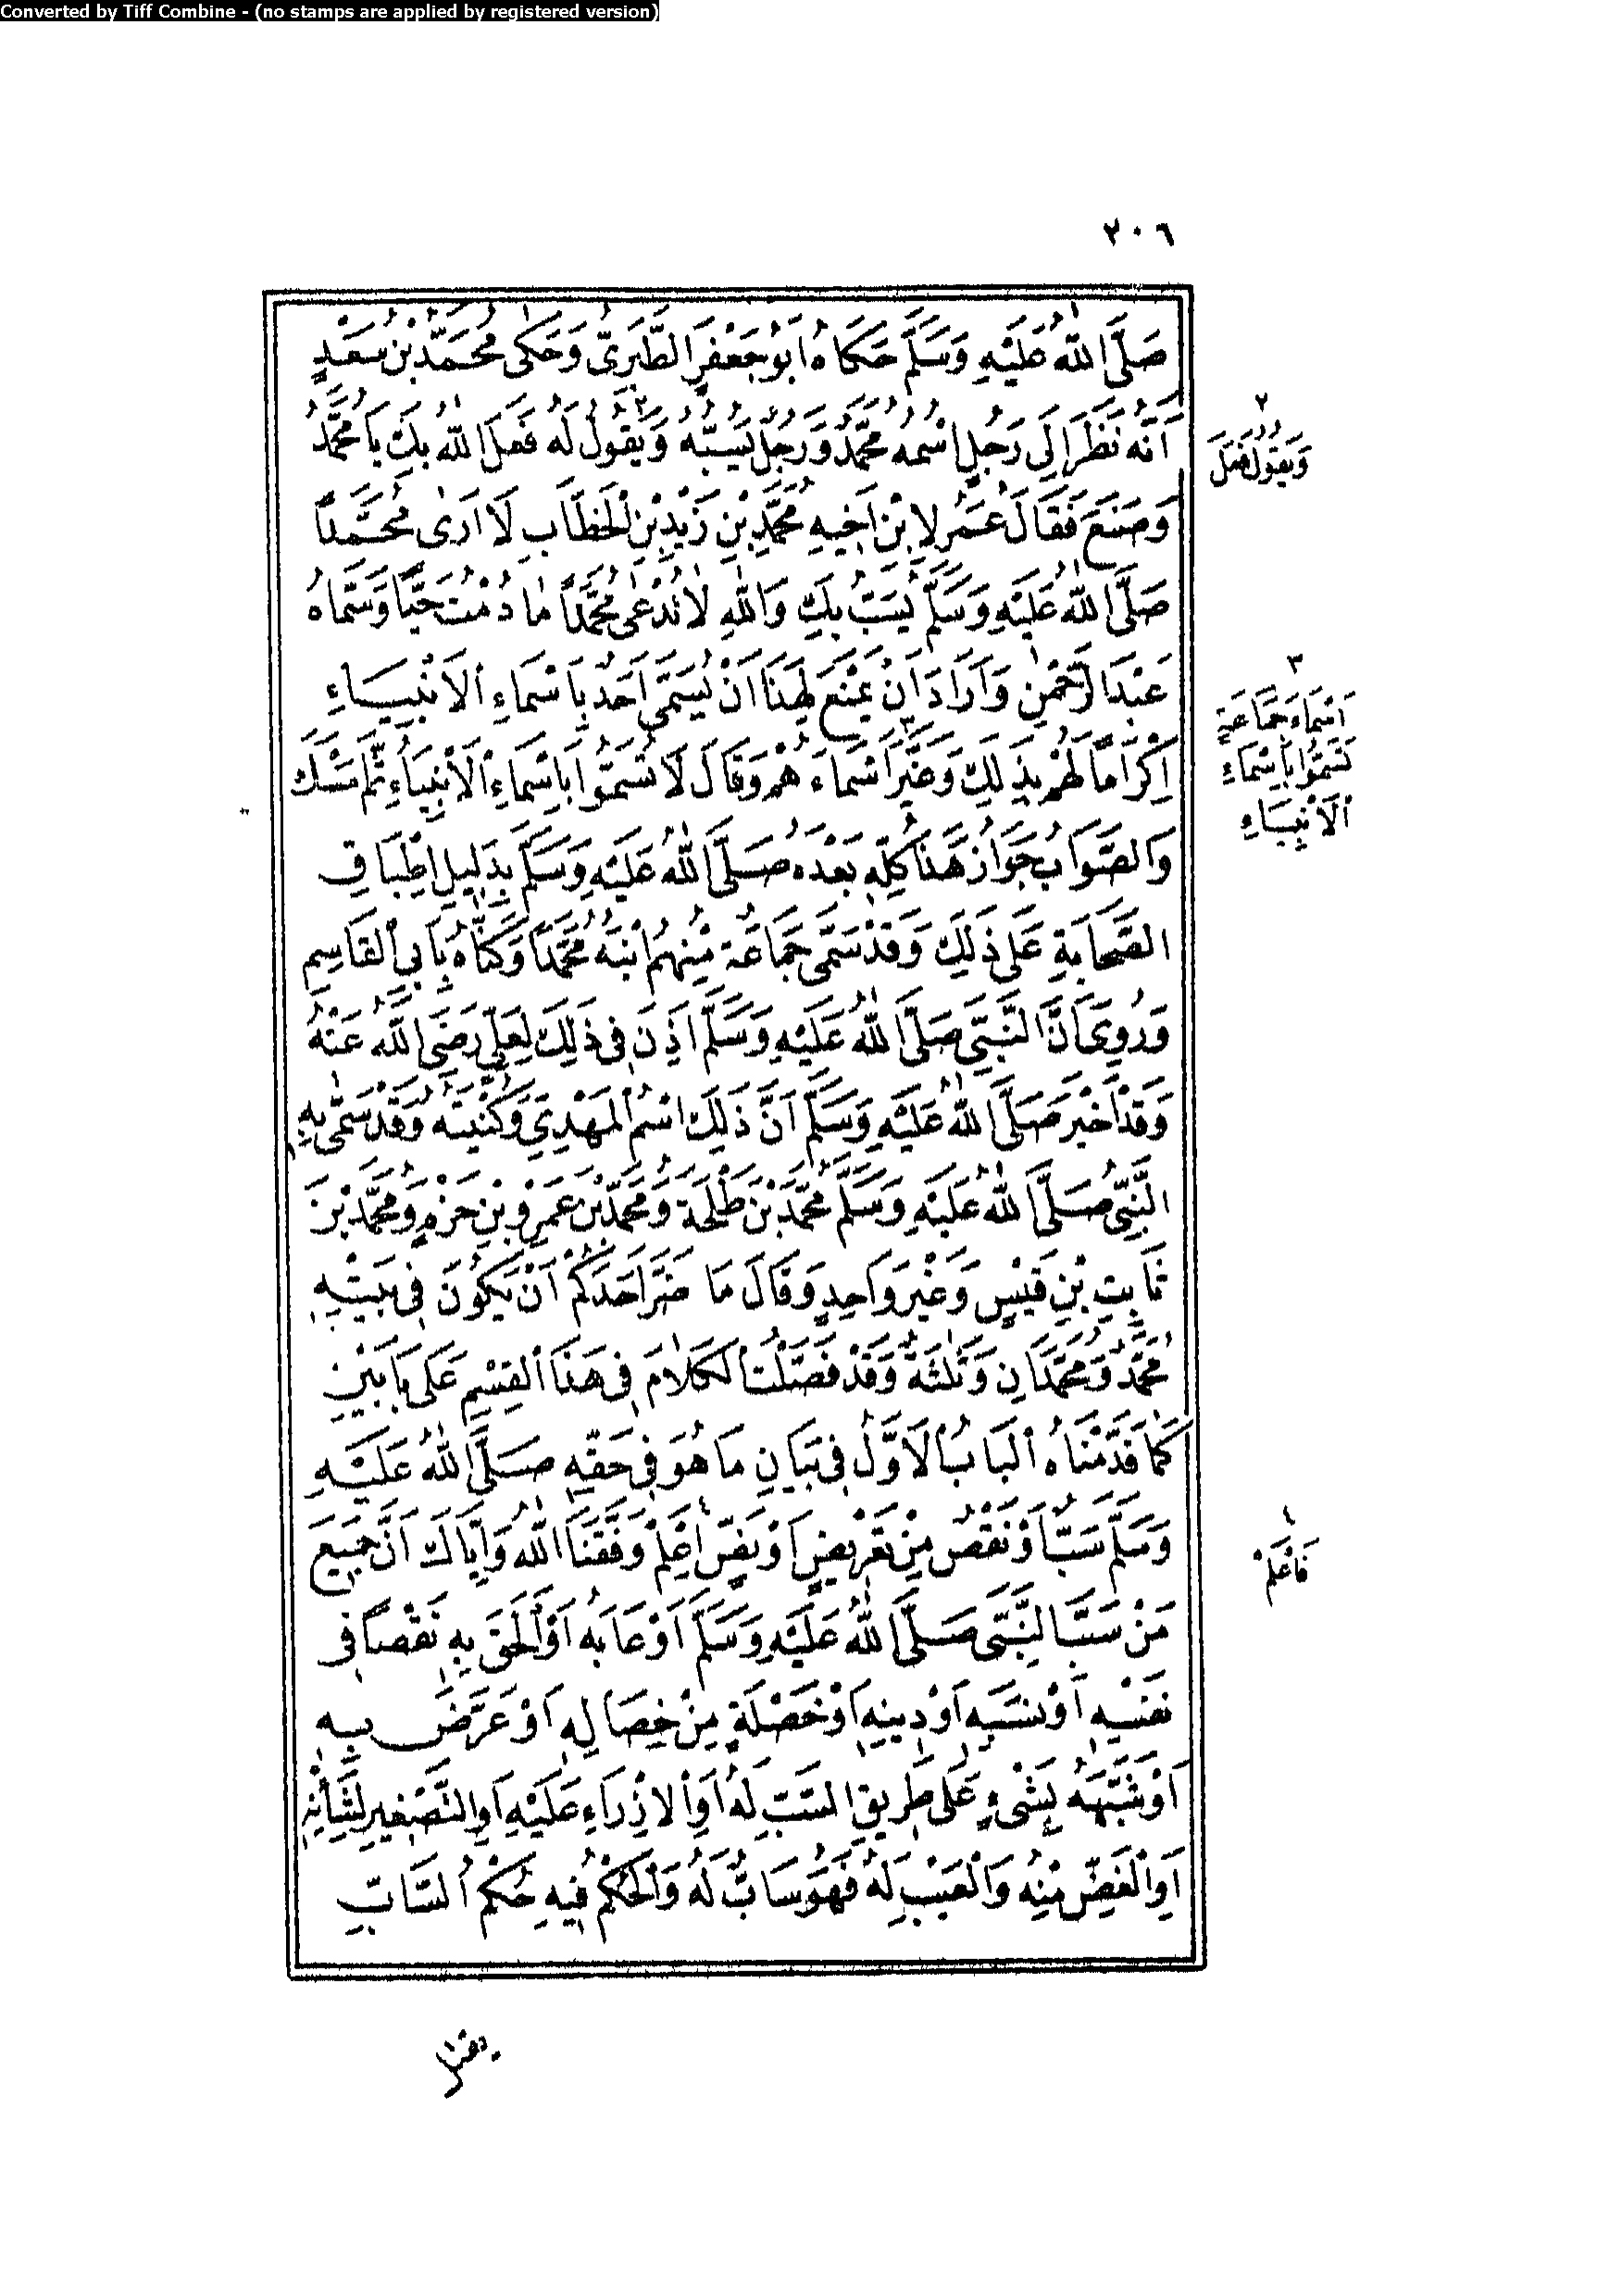 Converted by Tiff Combine - (no stamps are applied by registered version)
٢٠٦
صَلَّى اللّٰهُ عَلَيْهِ وَسَلَّمَ حَكَاهُ اَبُو جَعْفَرٍ الطَّبَرِىُّ وَحَكٰى مُحَمَّدُ بْنُ سَعْدٍ
اَنَّهُ نَظَرَ اِلَى رَجُلٍ اسْمُهُ مُحَمَّدٌ وَرَجُلٌ يَسُبُّهُ وَيَقُولُ لَهُ فَعَلَ اللّٰهُ بِكَ يَا مُحَمَّدُ
وَصَنَعَ فَقَالَ عُمَرُ لِابْنِ اَخِيهِ مُحَمَّدِ بْنِ زَيْدِ بْنِ الْخَطَّابِ لَا اَرٰى مُحَمَّداً
صَلَّى اللّٰهُ عَلَيْهِ وَسَلَّمَ يُسَبُّ بِكَ وَاللّٰهِ لَا تُدْعٰى مُحَمَّداً مَا دُمْتُ حَيًّا وَسَمَّاهُ
عَبْدَ الرَّحْمٰنِ وَاَرَادَ اَنْ يَمْنَعَ لِهٰذَا اَنْ يُسَمَّى اَحَدٌ بِاَسْمَاءِ الْاَنْبِيَاءِ
اِكْرَاماً لَهُمْ بِذٰلِكَ وَغَيَّرَ اَسْمَاءَهُمْ وَقَالَ لَا تُسَمُّوا بِاَسْمَاءِ الْاَنْبِيَاءِ ثُمَّ اَمْسَكَ
وَالصَّوَابُ جَوَازُ هٰذَا كُلِّهِ بَعْدَهُ صَلَّى اللّٰهُ عَلَيْهِ وَسَلَّمَ بِدَلِيلِ اِطْبَاقِ
الصَّحَابَةِ عَلَى ذٰلِكَ وَقَدْ سَمَّى جَمَاعَةٌ مِنْهُمُ ابْنَهُ مُحَمَّداً وَكَنَّاهُ بِاَبِى الْقَاسِمِ
وَرُوِىَ اَنَّ النَّبِىَّ صَلَّى اللّٰهُ عَلَيْهِ وَسَلَّمَ اَذِنَ فِى ذٰلِكَ لِعَلِىٍّ رَضِىَ اللّٰهُ عَنْهُ
وَقَدْ اَخْبَرَ صَلَّى اللّٰهُ عَلَيْهِ وَسَلَّمَ اَنَّ ذٰلِكَ اسْمُ الْمَهْدِىِّ وَكُنْيَتُهُ وَقَدْ سَمّٰى بِهِ
النَّبِىُّ صَلَّى اللّٰهُ عَلَيْهِ وَسَلَّمَ مُحَمَّدَ بْنَ طَلْحَةَ وَمُحَمَّدَ بْنَ عَمْرِو بْنِ حَزْمٍ وَمُحَمَّدَ بْنَ
ثَابِتِ بْنِ قَيْسٍ وَغَيْرَ وَاحِدٍ وَقَالَ مَا ضَرَّ اَحَدَكُمْ اَنْ يَكُونَ فِى بَيْتِهِ
مُحَمَّدٌ وَمُحَمَّدَانِ وَثَلٰثَةٌ وَقَدْ فَصَّلْتُ الْكَلَامَ فِى هٰذَا الْقِسْمِ عَلَى بَابَيْنِ
كَمَا قَدَّمْنَاهُ اَلْبَابُ الْاَوَّلُ فِى بَيَانِ مَا هُوَ فِى حَقِّهِ صَلَّى اللّٰهُ عَلَيْهِ
وَسَلَّمَ سَبٌّ اَوْ نَقْصٌ مِنْ تَعْرِيضٍ اَوْ نَصٍّ اِعْلَمْ وَفَّقَنَا اللّٰهُ وَاِيَّاكَ اَنَّ جَمِيعَ
مَنْ سَبَّ النَّبِىَّ صَلَّى اللّٰهُ عَلَيْهِ وَسَلَّمَ اَوْ عَابَهُ اَوْ اَلْحَقَ بِهِ نَقْصاً فِى
نَفْسِهِ اَوْ نَسَبِهِ اَوْ دِينِهِ اَوْ خَصْلَةٍ مِنْ خِصَالِهِ اَوْ عَرَّضَ بِهِ
اَوْ شَبَّهَهُ بِشَىْءٍ عَلَى طَرِيقِ السَّبِّ لَهُ اَوِ الْاِزْرَاءِ عَلَيْهِ اَوِ التَّصْغِيرِ لِشَأْنِهِ
اَوِ الْغَضِّ مِنْهُ وَالْعَيْبِ لَهُ فَهُوَ سَابٌّ لَهُ وَالْحُكْمُ فِيهِ حُكْمُ السَّابِّ
٢
وَيَقُولُ فَعَلَ
٣
اَسْمَاءَ جَمَاعَةٍ
تَسَمَّوْا بِاَسْمَاءِ
الْاَنْبِيَاءِ
٤
فَاعْلَمْ